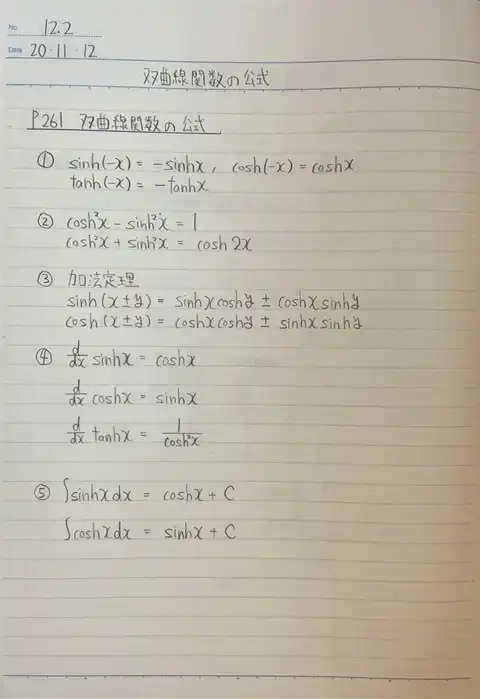 No. 12.2
Date 20・11・12
双曲線関数の公式
P261 双曲線関数の公式
① sinh(-x) = -sinhx, cosh(-x) = coshx
tanh(-x) = -tanhx
② cosh²x - sinh²x = 1
cosh²x + sinh²x = cosh2x
③ 加法定理
sinh(x±y) = sinhxcoshy ± coshxsinhy
cosh(x±y) = coshxcoshy ± sinhxsinhy
④ d/dx sinhx = coshx
d/dx coshx = sinhx
d/dx tanhx = 1/cosh²x
⑤ ∫sinhxdx = coshx + C
∫coshxdx = sinhx + C